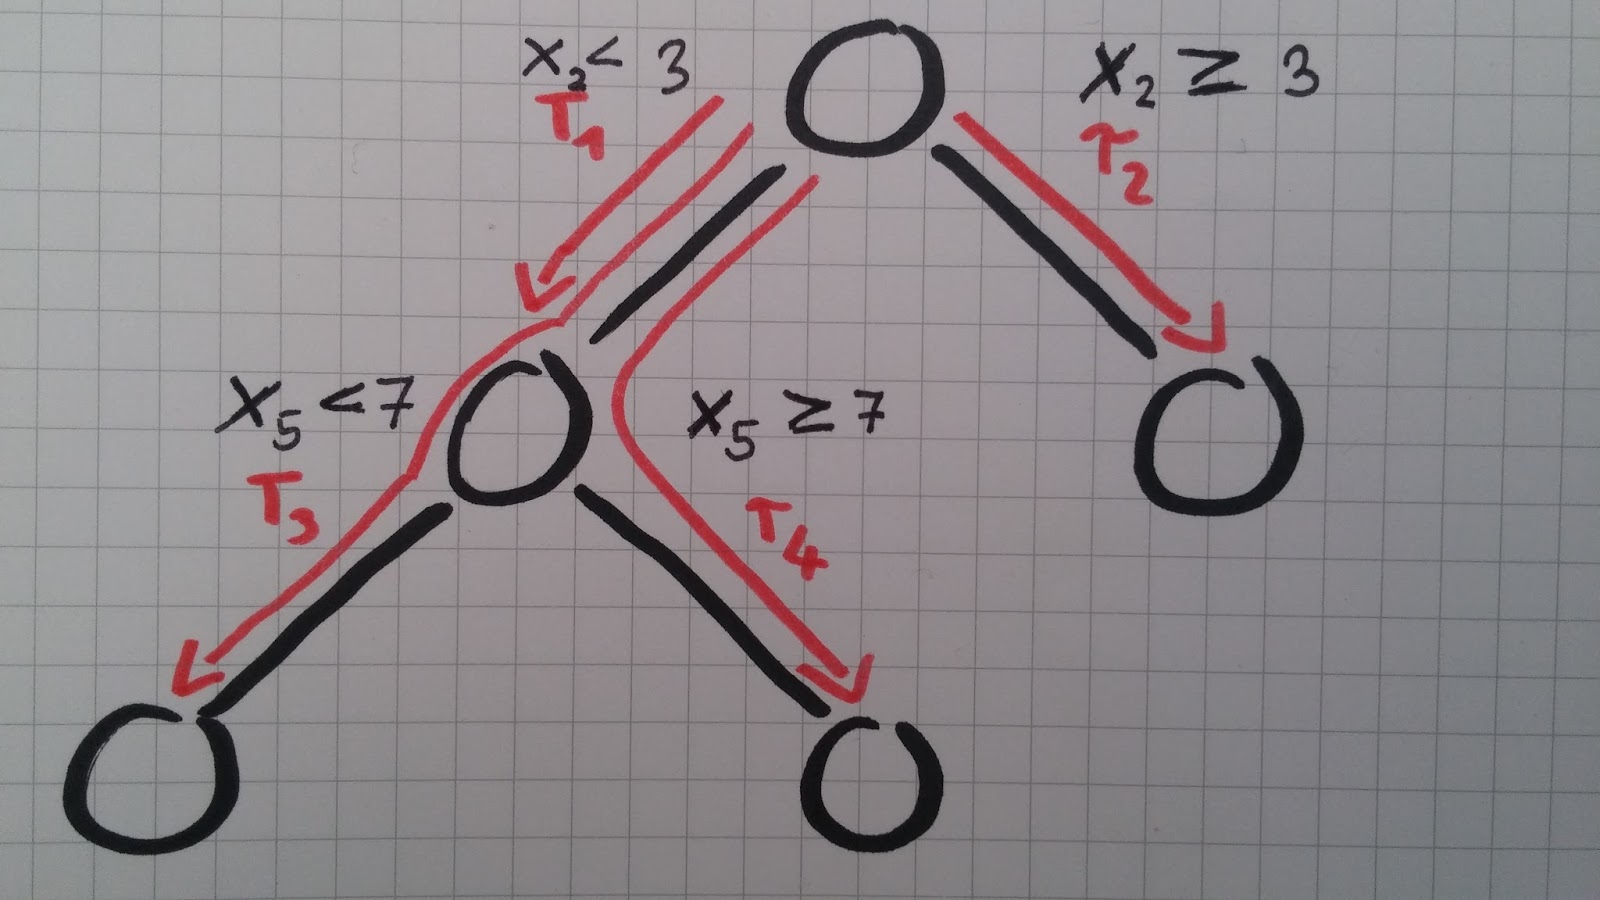 X₂ < 3
T₁
X₂ ≥ 3
T₂
X₅ < 7
T₃
X₅ ≥ 7
T₄